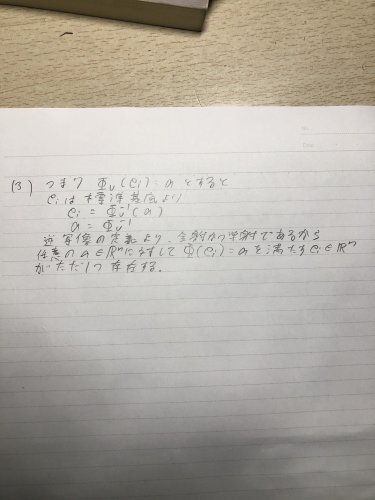 (3) つまり Φᵥ(eᵢ) = a とすると
eᵢは標準基底より
eᵢ = Φᵥ⁻¹(a)
a = Φᵥ⁻¹
逆写像の定義より、全射かつ単射であるから
任意の a ∈ ℝⁿに対して Φ(eᵢ) = a を満たす eᵢ ∈ ℝⁿ
がただ1つ存在する.
No.
Date